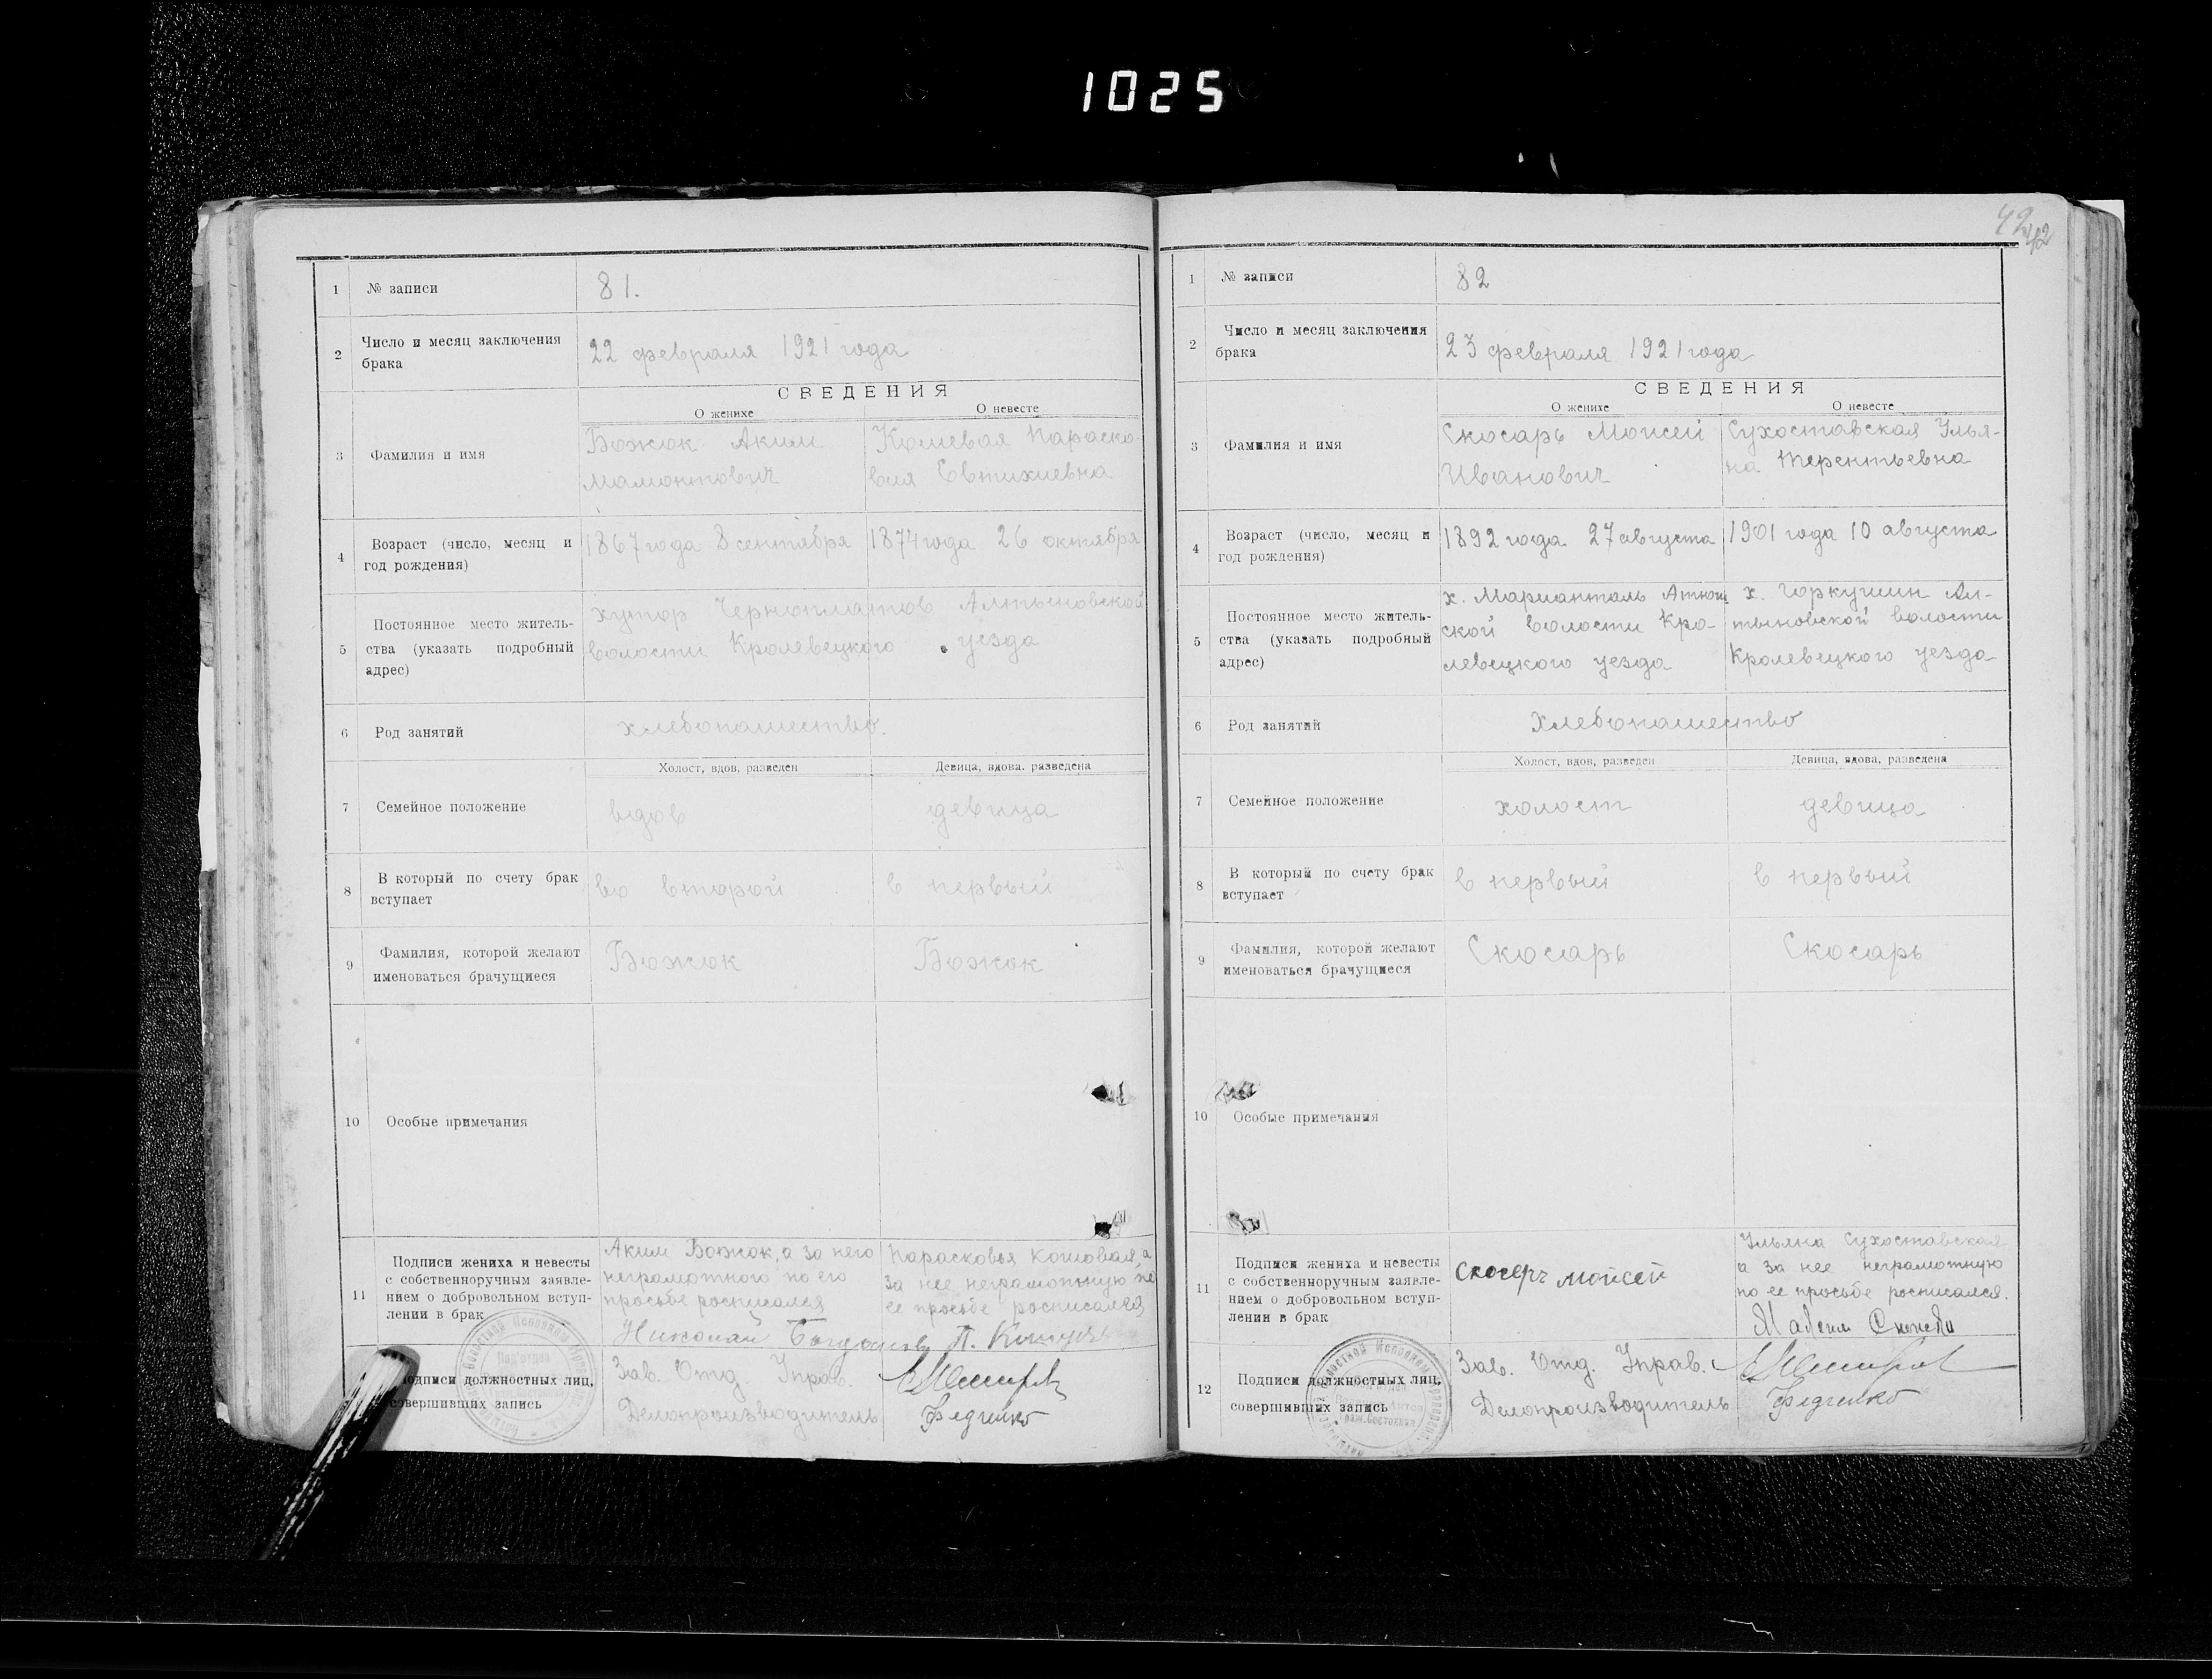 1025
1 № записи 81.
2 Число и месяц заключения
брака
22 февраля 1921 года
СВЕДЕНИЯ
О женихе О невесте
3 Фамилия и имя
Божок Аким
Мамонтович
Кошевая Параско-
вия Евтихиевна
4 Возраст (число, месяц и
год рождения)
1867 года 8 сентября
1874 года 26 октября
5 Постоянное место житель-
ства (указать подробный
адрес)
хутор Черноплатов Алтыновской
волости Кролевецкого уезда
6 Род занятий
хлебопашество.
Холост, вдов, разведен Девица, вдова, разведена
7 Семейное положение
вдов девица
8 В который по счету брак
вступает
во второй в первый
9 Фамилия, которой желают
именоваться брачущиеся
Божок Божок
10 Особые примечания
11 Подписи жениха и невесты
с собственноручным заявле-
нием о добровольном вступ-
лении в брак
Аким Божок, а за него
неграмотного по его
просьбе росписался
Николай
Парасковья Кошовая, а
за нее неграмотную по
ее просьбе росписался
П.
Подписи должностных лиц,
совершивших запись
Зав. Отд. Управ.
Делопроизводитель Федченко
42
42
1 № записи 82
2 Число и месяц заключения
брака
23 февраля 1921 года
СВЕДЕНИЯ
О женихе О невесте
3 Фамилия и имя
Скосарь Моисей
Иванович
Сухоставская Улья-
на Терентьевна
4 Возраст (число, месяц и
год рождения)
1892 года 27 августа
1901 года 10 августа
5 Постоянное место житель-
ства (указать подробный
адрес)
х. Марианталь
ской волости Кро-
левецкого уезда
х. Горкушин Ал-
тыновской волости
Кролевецкого уезда
6 Род занятий
Хлебопашество
Холост, вдов, разведен Девица, вдова, разведена
7 Семейное положение
холост девица
8 В который по счету брак
вступает
в первый в первый
9 Фамилия, которой желают
именоваться брачущиеся
Скосарь Скосарь
10 Особые примечания
11 Подписи жениха и невесты
с собственноручным заявле-
нием о добровольном вступ-
лении в брак
Моисей
Ульяна Сухоставская
а за нее неграмотную
по ее просьбе росписался.
12 Подписи должностных лиц,
совершивших запись
Зав. Отд. Управ.
Делопроизводитель Федченко